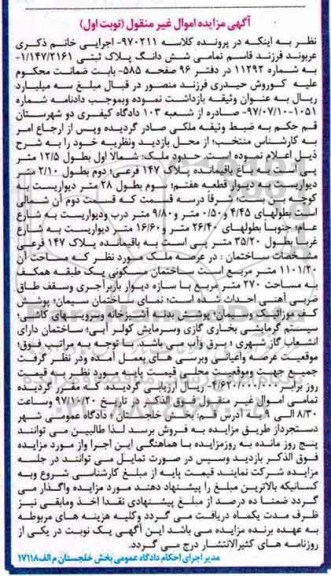 آگهی مزایده اموال غیر منقول (نوبت اول)
نظر به اینکه در پرونده کلاسه ۹۷۰۲۱۱- اجرایی خانم ذکری
عربوند فرزند قاسم تمامی شش دانگ پلاک ثبتی ۱/۱۴۷/۲۱۶۱-
به شماره ۱۱۲۹۲ در دفتر ۹۶ صفحه ۵۸۵- بابت ضمانت محکوم
علیه کوروش حیدری فرزند منصور در قبال مبلغ سه میلیارد
ریال به عنوان وثیقه بازداشت نموده وبموجب دادنامه شماره
۱۰۵۱-۹۷/۰۷/۱۰- صادره از شعبه ۱۰۳ دادگاه کیفری دو شهرستان
قم حکم به ضبط وثیقه ملکی صادر گردیده وپس از ارجاع امر
به کارشناس منتخب؛ از محل بازدید ونظریه خود را به شرح
ذیل اعلام نموده است: حدود ملک: شمالا اول بطول ۱۲/۵ متر
پی است به باغ باقیمانده پلاک ۱۴۷ فرعی؛ دوم بطول ۲/۱۰ متر
دیواریست به دیوار قطعه هفتم؛ سوم بطول ۲۸ متر دیواریست به
کوچه بن بست، شرقا درسه قسمت که قسمت دوم آن شمالی
است بطولهای ۴/۴۵ و ۰/۵۰ متر و ۹/۸۰ متر درب ودیواریست به شارع
عام؛ جنوبا بطولهای ۲۶/۴۰ متر و ۱۶/۶۰ متر دیواریست به شارع
غربا بطول ۳۵/۲۰ متر پی است به باقیمانده پلاک ۱۴۷ فرعی
مشخصات ساختمان: در عرصه ملک مورد نظر که مساحت آن
۱۱۰۱/۲۰ متر مربع است ساختمان مسکونی یک طبقه همکف
به مساحت ۲۷۰ متر مربع با سازه دیوار باربرآجری وسقف طاق
ضربی آهنی احداث شده است؛ نمای ساختمان سیمان؛ پوشش
کف موزاییک وسرامیک؛ پوشش بدنه آشپزخانه وسرویسهای کاشی؛
سیستم گرمایشی بخاری گازی وسرمایش کولر آبی؛ ساختمان دارای
انشعاب گاز شهری؛ برق وآب می باشد. لذا با توجه به مراتب فوق؛
موقعیت عرصه واعیانی وبررسی های بعمل آمده ودر نظر گرفت
جمیع جهت وموقعیت محلی قیمت پایه مورد نظر به قیمت
روز برابر ۴/۶۲۰/۰۰۰/۰۰۰ ریال ارزیابی گردیده که مقرر گردیده
تمامی اموال غیر منقول فوق الذکر در تاریخ ۹۷/۱۰/۲۰ وساعت
۸/۳۰ الی ۹ به آدرس قم، بخش خلجستان/ دادگاه عمومی شهر
دستجرداز طریق مزایده به فروش برسد لذا طالبین می توانند
پنج روز مانده به روزمزایده با هماهنگی این اجرا واز مورد مزایده
فوق الذکر بازدید وسپس در صورت تمایل می توانند در جلسه
مزایده شرکت نمایند قیمت پایه از مبلغ کارشناسی شروع وبه
کسانیکه بالاترین مبلغ را پیشنهاد دهند مورد مزایده واگذار می
گردد ضمنا ده درصد از مبلغ پیشنهادی نقدا اخذ ومابقی نیز
ظرف مدت یکماه دریافت می گردد وکلیه هزینه های مربوطه
به عهده برنده مزایده می باشد این آگهی یک نوبت در یکی از
روزنامه های کثیرالانتشار درج می گردد.
مدیر اجرای احکام دادگاه عمومی بخش خلجستان م الف ۱۷۱۱۸